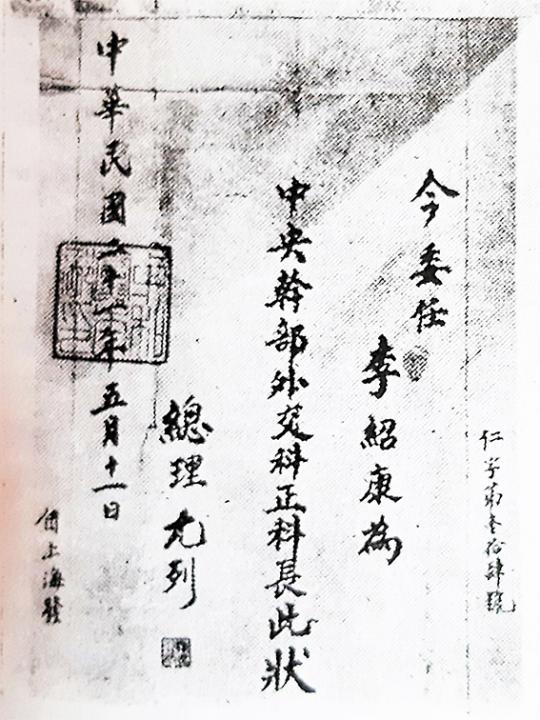 仁字第叁拾肆號
今委任
李紹康為
中央幹部外交科正科長此狀
總理尤列
中華民國二十一年五月十一日
上海發